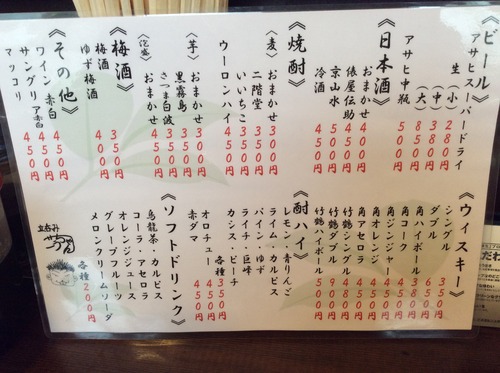 《ビール》
アサヒスーパードライ
生 (小) 280円
(中) 380円
(大) 850円
アサヒ中瓶 500円
《日本酒》
おまかせ
俵屋伝助
京山水
冷酒
《焼酎》
〈麦〉 おまかせ 300円
二階堂 350円
いいちこ 350円
ウーロンハイ
〈芋〉 おまかせ 300円
黒霧島 350円
さつま白波 350円
〈泡盛〉 おまかせ
《梅酒》
梅酒 350円
ゆず梅酒 400円
《その他》
ワイン 赤白 450円
サングリア 赤白 450円
マッコリ 450円
《ウィスキー》
シングル 350円
ダブル 650円
角ハイボール 380円
角コーク 450円
角ジンジャー 450円
角オレンジ 450円
角アセロラ 450円
竹鶴シングル
竹鶴ダブル 900円
竹鶴ハイボール
《酎ハイ》
レモン・青りんご
ライム・カルピス
パイン・ゆず
ライチ・巨峰
カシス・ピーチ
各種 350円
オロチュー 450円
赤ダマ 450円
《ソフトドリンク》
烏龍茶・カルピス
コーラ・アセロラ
オレンジジュース
グレープフルーツ
メロンクリームソーダ
各種 200円
立呑み